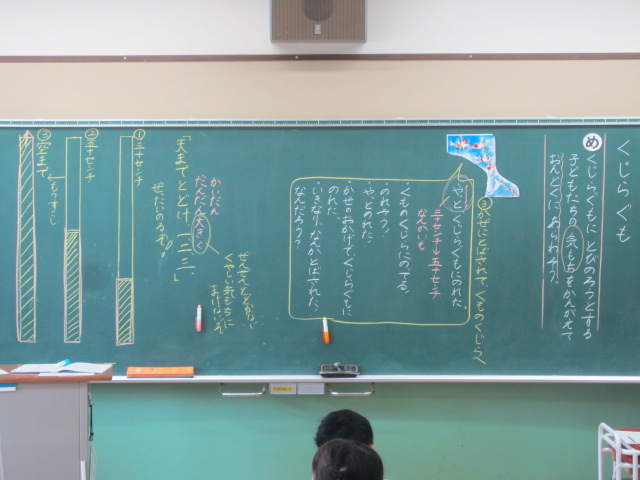 くじらぐも
め
くじらぐもに とびのろうとする
子どもたちの 気もちを かんがえて
おんどくに あらわそう。
③かぜにとばされて、くものくじらへ
・やっとくじらぐもにのれた。
三十センチ→五十センチ
なんかいも
・くものくじらにのてる。
・のれそう。
・やっとのれた。
・かぜのおかげでくじらぐもに
のれた。
・いきなりかぜがとばされた。
なんだろう？
ぜんぜんとどかない
くやしい気もちに
まけないぞ
かいだん
だんだん大きく
「天までとどけ、一、二、三。」
ぜったいのるぞ。
①
三十センチ
②
五十センチ
もうすこし
③
空まで